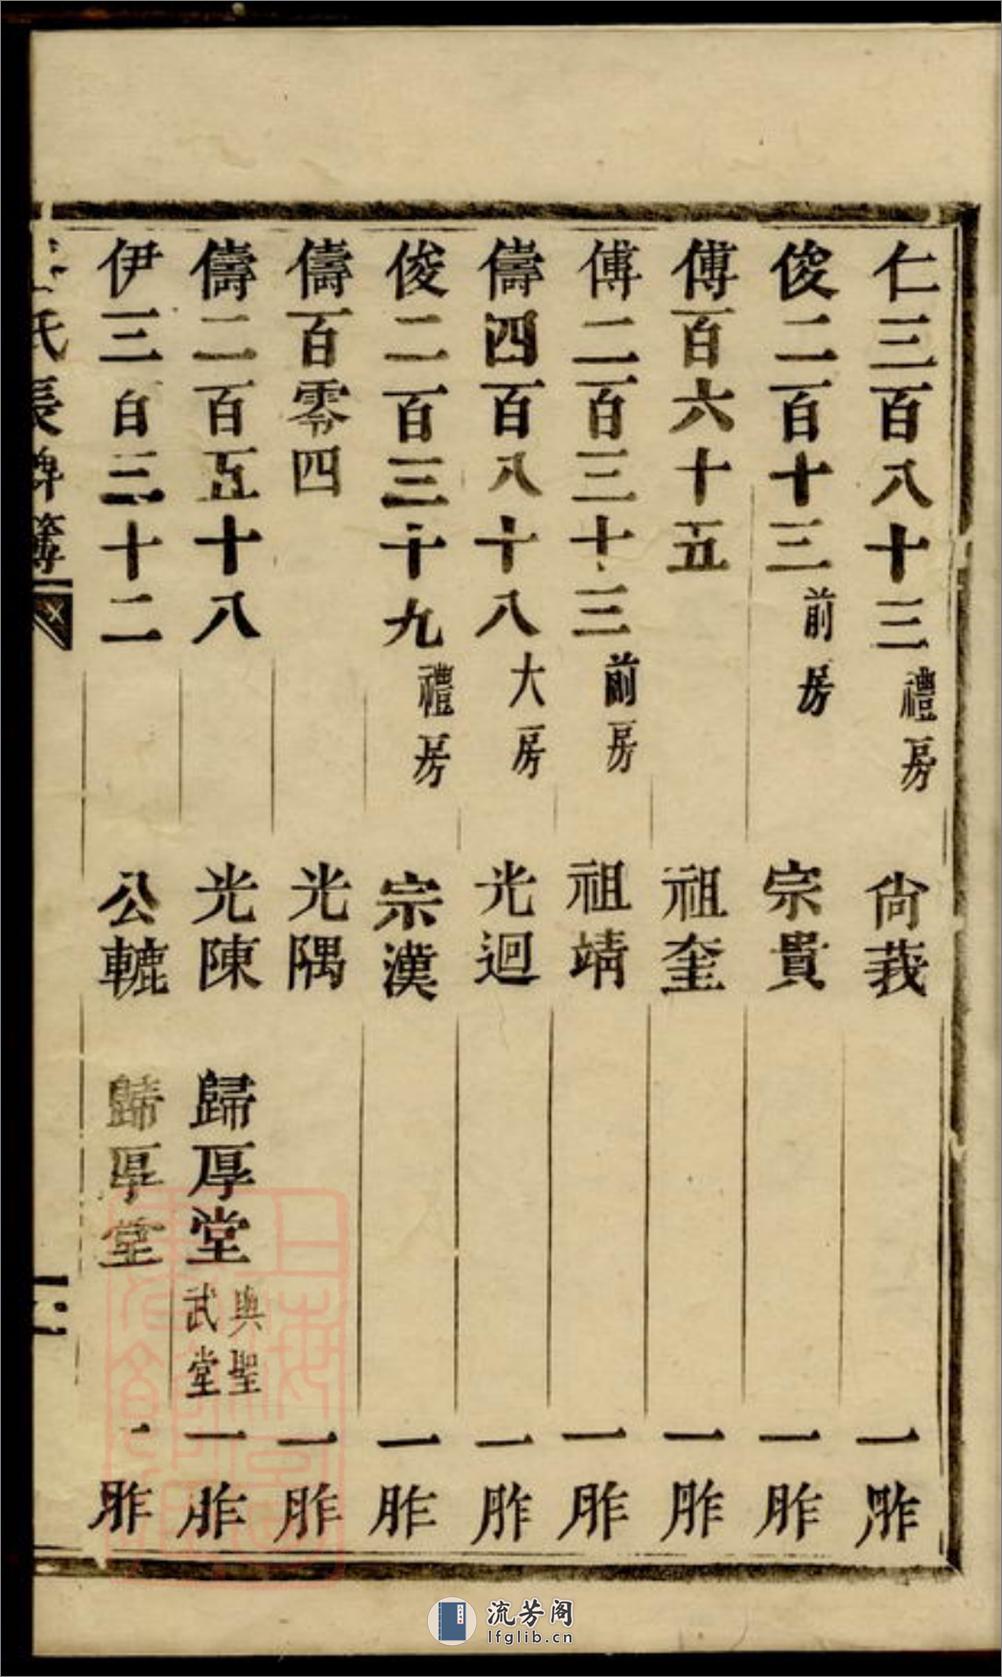 仁三百八十三 禮房 尙莪 一胙
俊二百十三 前房 宗貴 一胙
傅百六十五 祖奎 一胙
傅二百三十三 前房 祖靖 一胙
儔四百八十八 大房 光迴 一胙
俊二百三十九 禮房 宗漢 一胙
儔百零四 光隅 一胙
儔二百五十八 光陳 歸厚堂 與聖武堂 一胙
伊三百三十二 公轆 歸厚堂 一胙
氏長牌簿
流芳阁
lfglib.cn